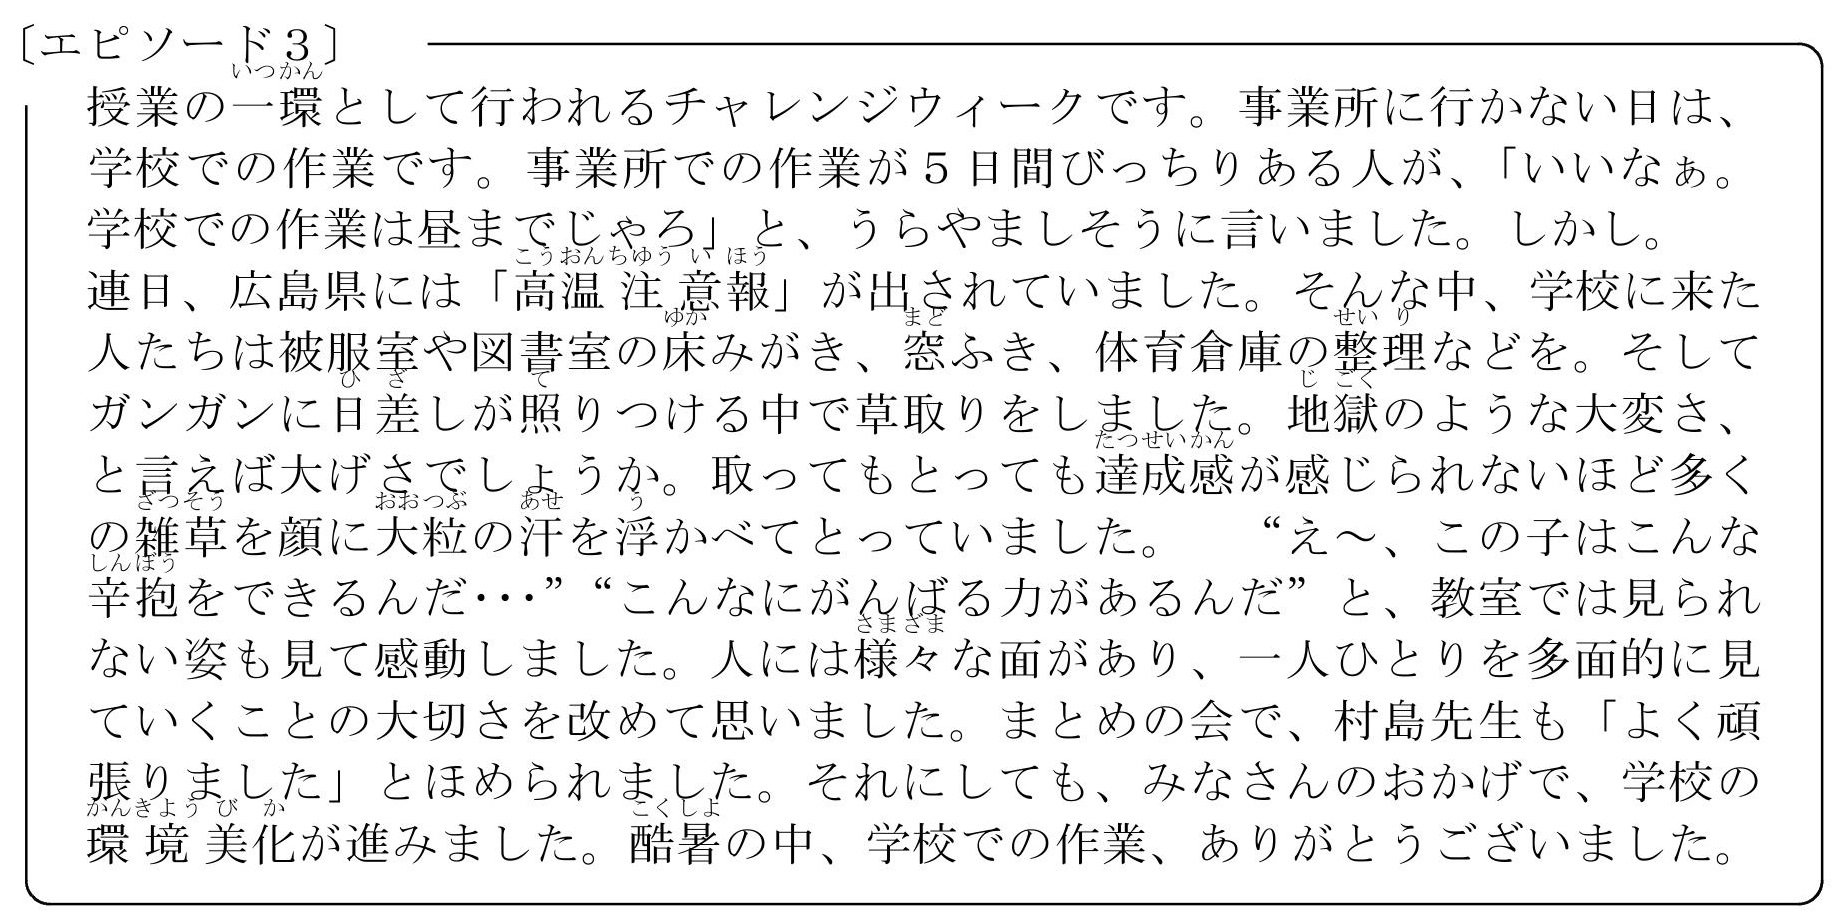 〔エピソード３〕
いつかん
授業の一環として行われるチャレンジウィークです。事業所に行かない日は、
学校での作業です。事業所での作業が５日間びっちりある人が、「いいなぁ。
学校での作業は昼までじゃろ」と、うらやましそうに言いました。しかし。
こうおんちゆう い ほう
連日、広島県には「高温注意報」が出されていました。そんな中、学校に来た
ゆか まど せい り
人たちは被服室や図書室の床みがき、窓ふき、体育倉庫の整理などを。そして
ひ ざ て じ ごく
ガンガンに日差しが照りつける中で草取りをしました。地獄のような大変さ、
たつせいかん
と言えば大げさでしょうか。取ってもとっても達成感が感じられないほど多く
ざつそう おおつぶ あせ う
の雑草を顔に大粒の汗を浮かべてとっていました。 “え～、この子はこんな
しんぼう
辛抱をできるんだ･･･”“こんなにがんばる力があるんだ”と、教室では見られ
さまざま
ない姿も見て感動しました。人には様々な面があり、一人ひとりを多面的に見
ていくことの大切さを改めて思いました。まとめの会で、村島先生も「よく頑
張りました」とほめられました。それにしても、みなさんのおかげで、学校の
かんきよう び か こくしよ
環境美化が進みました。酷暑の中、学校での作業、ありがとうございました。